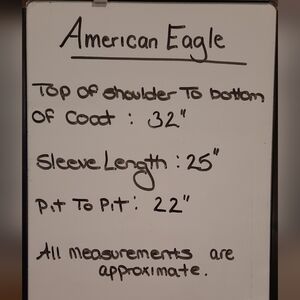 American Eagle
Top of shoulder To bottom
of Coat : 32"
Sleeve Length : 25"
Pit To Pit : 22"
All measurements are
approximate.